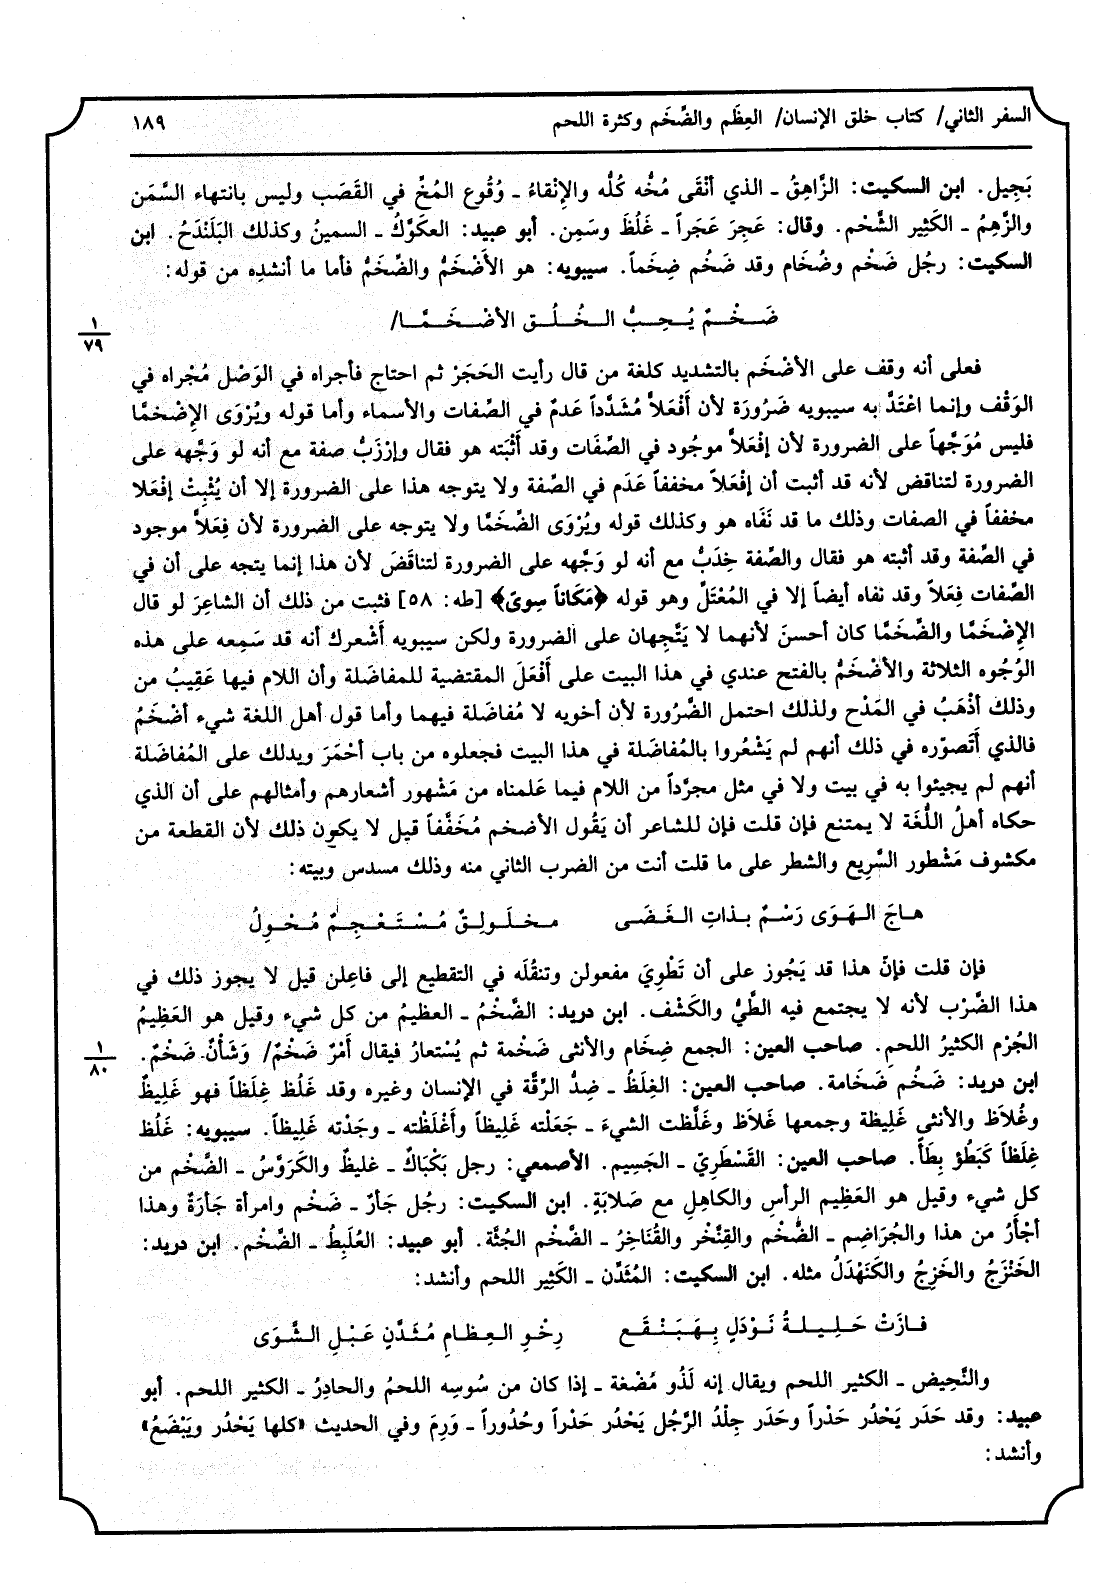 السفر الثاني/ كتاب خلق الإنسان/ العِظَم والضِّخَم وكثرة اللحم ١٨٩
بَجِيل. ابن السكيت: الزَّاهِقُ ـ الذي أنْقَى مُخُّه كُلُّه والإنْقاءُ ـ وُقُوع المُخِّ في القَصَب وليس بانتهاء السَّمَن
والزَّهِمُ ـ الكَثِير الشَّحْم. وقال: عَجِرَ عَجَراً ـ غَلُظَ وسَمِن. أبو عبيد: العكَوَّكُ ـ السمينُ وكذلك البَلَنْدَحُ. ابن
السكيت: رجُل ضَخْم وضُخَام وقد ضَخُم ضِخَماً. سيبويه: هو الأَضْخَمُّ والضِّخَمُّ فأما ما أنشدِه من قوله:
ضَخْمٌ يُحِبُّ الخُلُق الأضْخَمَّا/
١
٧٩
فعلى أنه وقف على الأضْخَم بالتشديد كلغة من قال رأيت الحَجَرّ ثم احتاج فأجراه في الوَصْل مُجْراه في
الوَقْف وإنما اعْتَدَّ به سيبويه ضَرُورَة لأن أَفْعَلاًّ مُشَدَّداً عَدمٌ في الصِّفات والأسماء وأما قوله ويُرْوَى الإِضْخمَّا
فليس مُوَجَّهاً على الضرورة لأن إفْعَلاًّ موجُود في الصِّفَات وقد أثْبَته هو فقال وإرْزَبُّ صفة مع أنه لو وَجَّهه على
الضرورة لتناقض لأنه قد أثبت أن إفْعَلاً مخففاً عَدَم في الصِّفة ولا يتوجه هذا على الضرورة إلا أن يُثْبِتْ إفْعَلا
مخففاً في الصفات وذلك ما قد نَفَاه هو وكذلك قوله ويُرْوَى الضِّخَمَّا ولا يتوجه على الضرورة لأن فِعَلاًّ موجود
في الصِّفة وقد أثبته هو فقال والصِّفة خِدَبُّ مع أنه لو وَجَّهه على الضرورة لتناقَضَ لأن هذا إنما يتجه على أن في
الصِّفات فِعَلاً وقد نفاه أيضاً إلا في المُعْتَلِّ وهو قوله ﴿مَكَاناً سِوىً﴾ [طه: ٥٨] فثبت من ذلك أن الشاعِرَ لو قال
الإِضْخَمَّا والضِّخَمَّا كان أحسنَ لأنهما لا يَتَّجِهان على الضرورة ولكن سيبويه أشْعرك أنه قد سَمِعه على هذه
الوُجُوه الثلاثة والأضْخَمُّ بالفتح عندي في هذا البيت على أَفْعَلَ المقتضية للمفاضَلة وأن اللام فيها عَقِيبُ من
وذلك أذْهَبُ في المَدْح ولذلك احتمل الضَّرُورة لأن أخويه لا مُفاضَلة فيهما وأما قول أهل اللغة شيء أضْخَمُ
فالذي أتَصوّره في ذلك أنهم لم يَشْعُروا بالمُفاضَلة في هذا البيت فجعلوه من باب أحْمَرَ ويدلك على المُفاضَلة
أنهم لم يجيئوا به في بيت ولا في مثل مجرَّداً من اللام فيما عَلمناه من مَشْهور أشعارهم وأمثالهم على أن الذي
حكاه أهلُ اللُّغَة لا يمتنع فإن قلت فإن للشاعر أن يَقُول الأضخم مُخَفَّفاً قيل لا يكون ذلك لأن القطعة من
مكشوف مَشْطور السَّرِيع والشطر على ما قلت أنت من الضرب الثاني منه وذلك مسدس وبيته:
هاجَ الهَوَى رَسْمٌ بذاتِ الغَضَى مخلَولِقٌ مُسْتَعْجِمٌ مُحْوِلُ
فإن قلت فإنَّ هذا قد يَجُوز على أن تَطْوِيَ مفعولن وتنقُلَه في التقطيع إلى فاعِلن قيل لا يجوز ذلك في
هذا الضَّرْب لأنه لا يجتمع فيه الطَّيُّ والكَشْف. ابن دريد: الضَّخْمُ ـ العظيمُ من كل شيء وقيل هو العَظِيمُ
الجُرْم الكثيرُ اللحم. صاحب العين: الجمع ضِخَام والأنثى ضَخْمة ثم يُسْتعارُ فيقال أمْرٌ ضَخْمٌ/ وَشَأْنٌ ضَخْمٌ.
١
٨٠
ابن دريد: ضَخُم ضَخَامة. صاحب العين: الغِلَظُ ـ ضِدُّ الرِّقَّة في الإنسان وغيره وقد غَلُظ غِلَظاً فهو غَلِيظٌ
وغُلاَظ والأنثى غَلِيظة وجمعها غَلاَظ وغَلَّظت الشيءَ ـ جَعَلْته غَلِيظاً وأَغْلَظْته ـ وجَدْته غَلِيظاً. سيبويه: غَلُظ
غِلَظاً كَبَطُؤ بِطَأً. صاحب العين: القَسْطَرِيّ ـ الجَسِيم. الأصمعي: رجل بَكْبَاكٌ ـ غليظٌ والكَرَوَّسُ ـ الضَّخْم من
كل شيء وقيل هو العَظِيم الرأسِ والكاهِلِ مع صَلابَةٍ. ابن السكيت: رجُل جَأرٌ ـ ضَخْم وامرأة جَأرَةٌ وهذا
أجْأَرُ من هذا والجُرَاضِم ـ الضُّخْم والقِنَّخْر والقُنَاخِرُ ـ الضَّخْم الجُثَّة. أبو عبيد: العُلَبِطُ ـ الضَّخْم. ابن دريد:
الخَنْزَجُ والخَزِجُ والكَنَهْدَلُ مثله. ابن السكيت: المُثَدَّن ـ الكَثِير اللحم وأنشد:
فازَتْ حَلِيلةُ نَوْدَلٍ بِهَبَنْقَع رِخْوِ العِظامِ مُثَدَّنٍ عَبْلِ الشَّوَى
والنَّحِيض ـ الكثير اللحم ويقال إنه لَذُو مُضْغة ـ إذا كان من سُوسِه اللحمُ والحادِرُ ـ الكثير اللحم. أبو
عبيد: وقد حَدَر يَحْدُر حَدْراً وحَدَر جِلْدُ الرَّجُل يَحْدُر حَدْراً وحُدُوراً ـ وَرِمَ وفي الحديث «كلها يَحْدُر ويَبْضَعُ»
وأنشد: